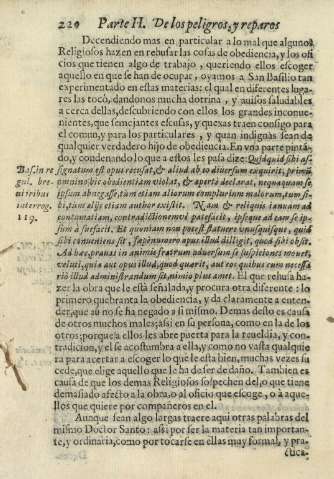 220 Parte II. De los peligros, y reparos
Decendiendo mas en particular a lo mal que algunos
Religiosos hazen en rehusar las cosas de obediencia, y los ofi
cios que tienen algo de trabajo, queriendo ellos escoger
aquello en que se han de ocupar, oyamos a San Basilio tan
experimentado en estas materias: el qual en diferentes luga-
res las tocò, dandonos mucha dotrina, y auisos saludables
acerca dellas, descubriendo con ellos los grandes inconue-
nientes, que semejantes escusas, y quexas traen consigo para
el comun, y para los particulares, y quan indignas sean de
qualquier verdadero hijo de obediencia. En vna parte pintã-
do, y condenando lo que a estos les pasa dize: Quidquid sibi as-
Bas. in re signatum est opus recusat, & aliud ab eo diuersum exquirit, primùm
gul. bre omnino sibi obedientiam violat, & apertè declarat, nequaquam se
uioribus ipsum abnegasse, tum etiam aliorum complurium malorum, tum si-
interrog. bi, tum alijs etiam author existit. Nam & reliquis ianuam ad
119. contumatiam, contradictionemque patefacit, ipseque ad eam se ip-
sum assuefacit. Et quoniam non potest statuere vnusquisque, quid
sibi conueniens sit, sæpenumero opus illud diligit, quod sibi obsit.
Ad hæc, prauas in animis fratrum aduersum se suspiciones mouet,
veluti, quia aut opus illud, quod quærit, aut eos quibuscum necessa
riò illud administrandum sit, nimio plus amet. El que rehusa ha-
zer la obra que le està señalada, y procura otra diferente: lo
primero quebranta la obediencia, y da claramente a enten-
der, que aũ no se ha negado a si mismo. Demas desto es causa
de otros muchos males; asi en su persona, como en la de los
otros; porque a ellos les abre puerta para la rebeldia, y con-
tradicion, y el se acostumbra a ella, y como no vasta qualquie
ra para acertar a escoger lo que le està bien, muchas vezes su
cede, que elige aquello que le ha de ser de daño. Tambien es
causa de que los demas Religiosos sospechen del, o que tiene
demasiado afecto a la obra, o al oficio que escoge, o a aque-
llos que quiere por compañeros en el.
Aunque sean algo largas traere aqui otras palabras del
mismo Doctor Santo: asi por ser la materia tan importan-
te, y ordinaria, como por tocarse en ellas muy formal, y pra-
ctica-